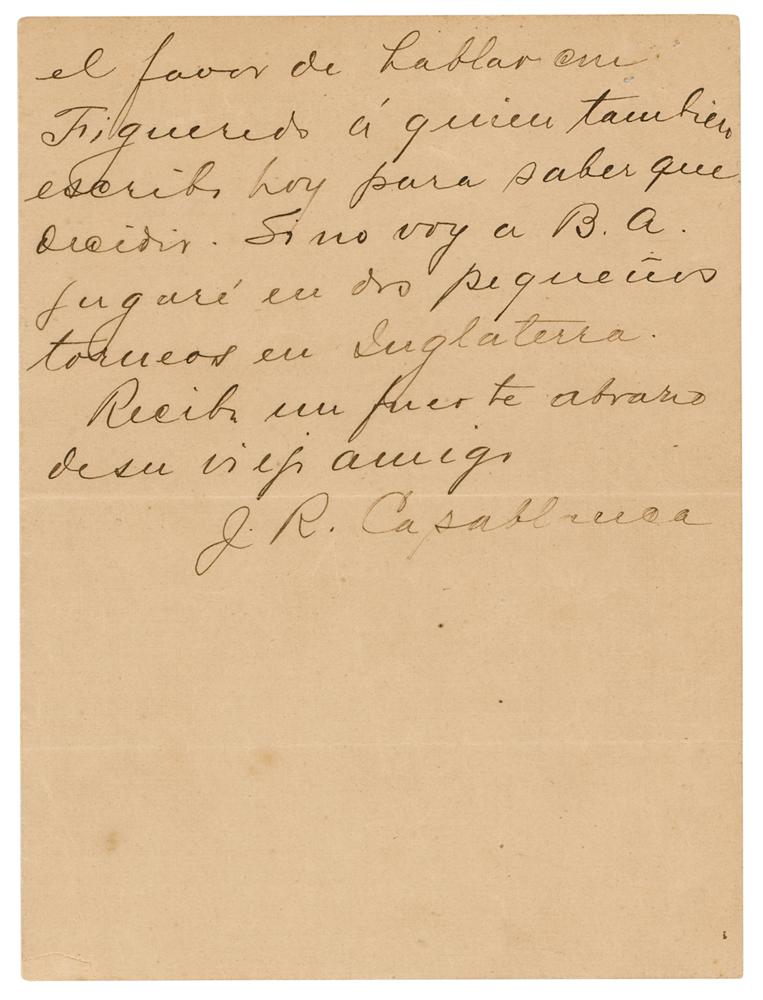 el favor de hablar con
Figueredo á quien tambien
escribo hoy para saber que
decidir. Si no voy a B. A.
jugaré en dos pequeños
torneos en Inglaterra.
Reciba un fuerte abrazo
de su viejo amigo
J. R. Casablanca